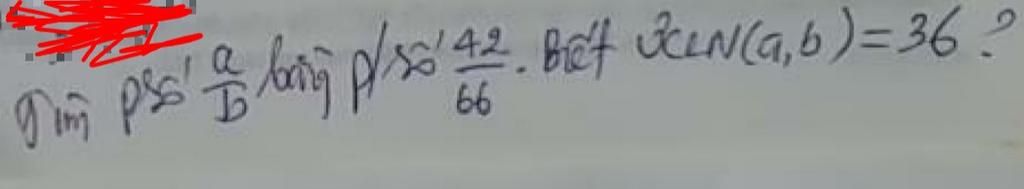 Tìm psố a/b bằng p/số 42/66. Biết ƯCLN(a,b)=36?